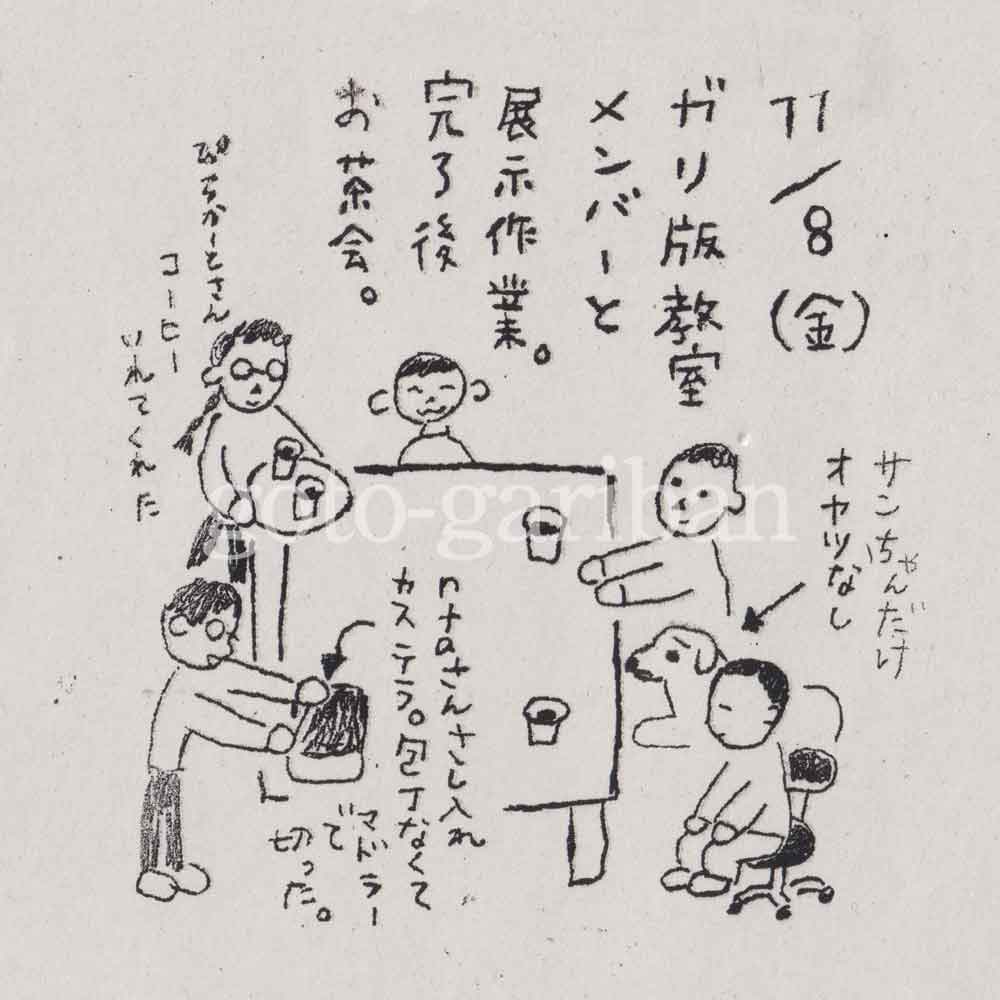 11/8(金)
ガリ版教室
メンバーと
展示作業。
完了後
お茶会。
ぴちかーとさん
コーヒー
いれてくれた
サンちゃんだけ
オヤツなし
さんさし入れ
カステラ。包丁なくて
マドラー
で
切った。
goto-garihan